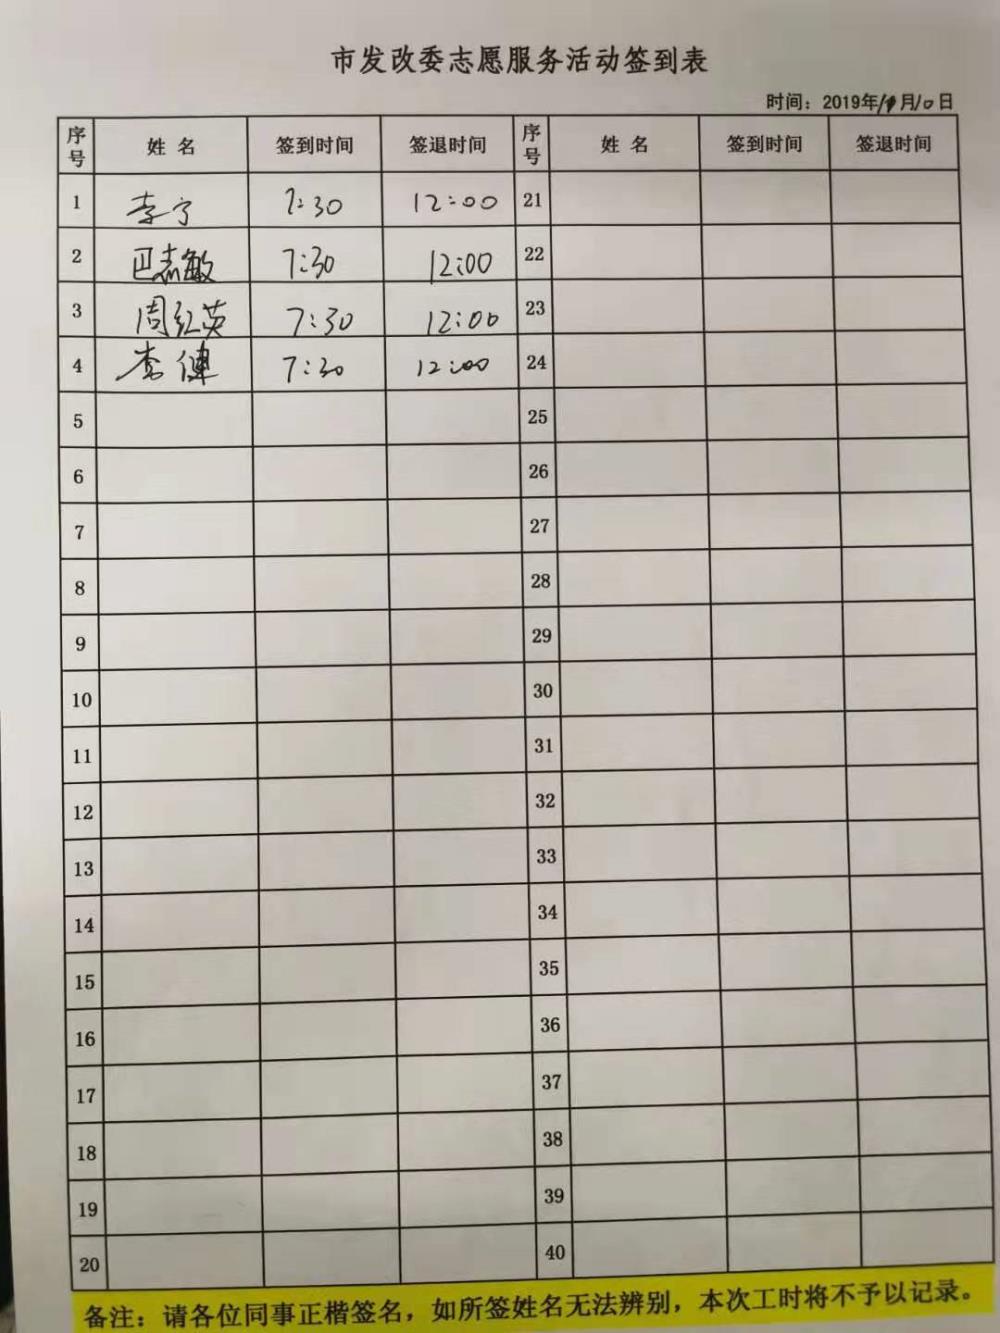 市发改委志愿服务活动签到表
时间：2019年11月10日
序号 姓名 签到时间 签退时间 序号 姓名 签到时间 签退时间
1 李宁 7:30 12:00 21
2 巴志敏 7:30 12:00 22
3 周红英 7:30 12:00 23
4 李健 7:30 12:00 24
5 25
6 26
7 27
8 28
9 29
10 30
11 31
12 32
13 33
14 34
15 35
16 36
17 37
18 38
19 39
20 40
备注：请各位同事正楷签名，如所签姓名无法辨别，本次工时将不予以记录。